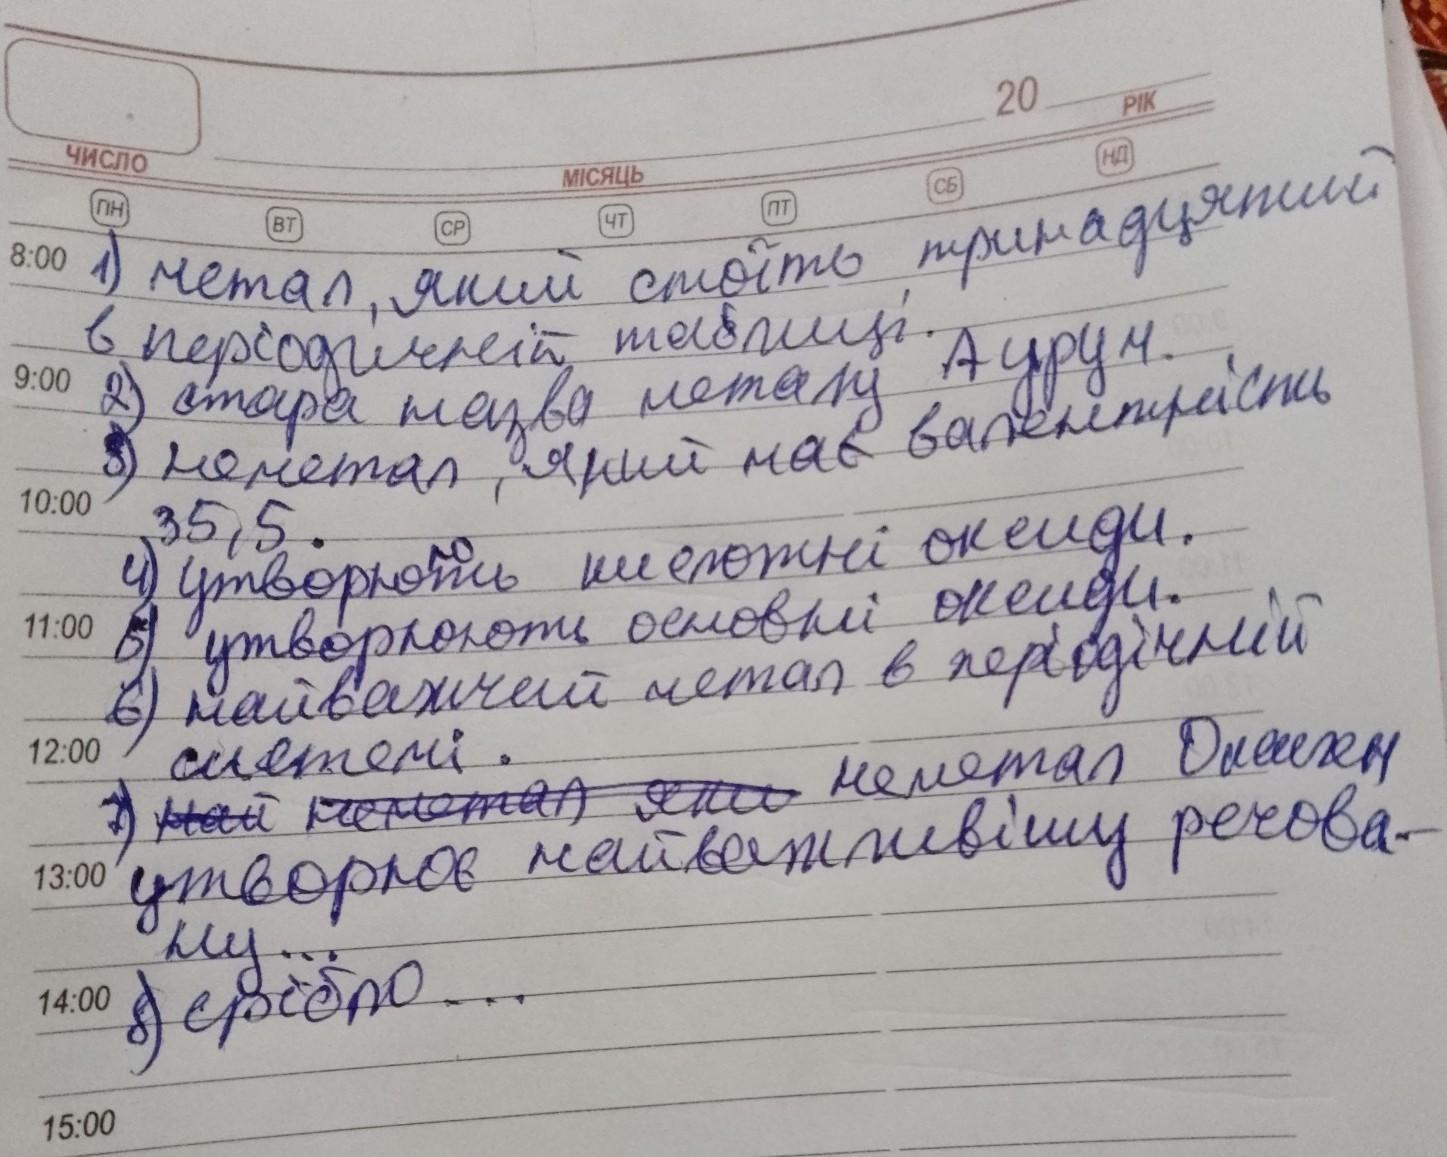 20 РІК
ЧИСЛО МІСЯЦЬ
ПН ВТ СР ЧТ ПТ СБ НД
8:00 1) метал, який стоїть тринадцятий
в періодичній таблиці.
9:00 2) стара назва металу Аурум.
3) неметал, який має валентність
10:00 35,5.
4) утворюють кислотні оксиди.
11:00 5) утворюють основні оксиди.
6) найважчий метал в періодічній
12:00 системі.
7) най неметал яки неметал Оксиген
13:00 утворює найважливішу речова-
ну...
14:00 8) срібло ...
15:00